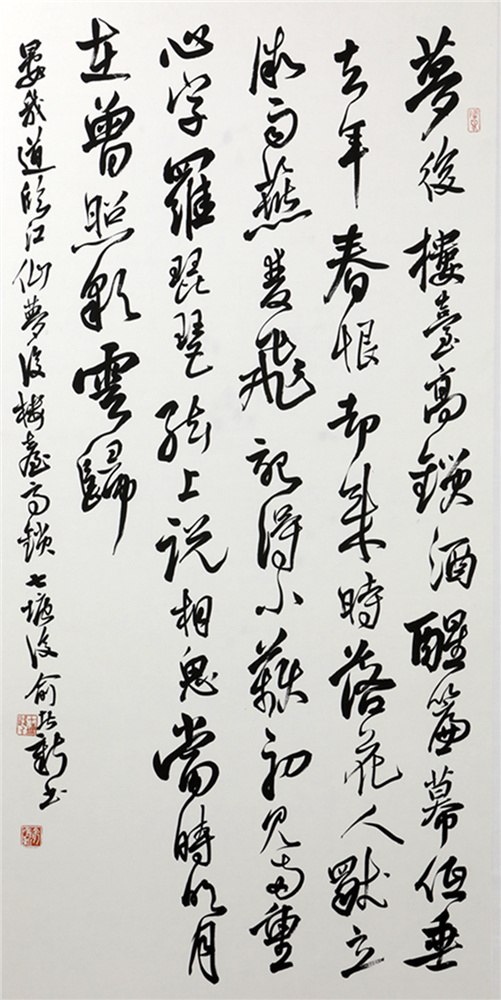 夢後樓臺高鎖酒醒簾幕低垂
去年春恨却來時落花人獨立
微雨燕雙飛記得小蘋初見兩重
心字羅琵琶絃上说相思當時明月
在曾照彩雲歸
晏幾道臨江仙夢後樓臺高鎖七塘後俞新书